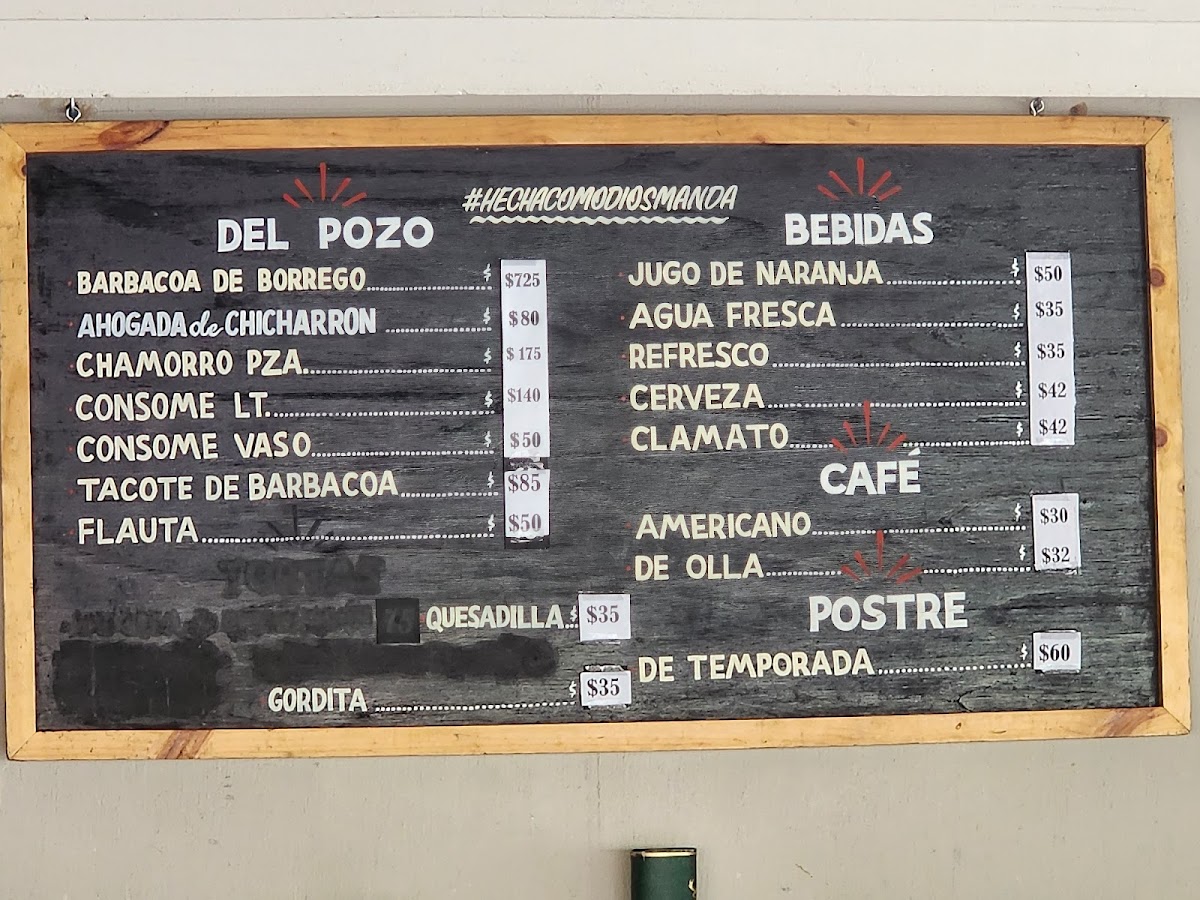 #HECHACOMODIOSMANDA
DEL POZO
BARBACOA DE BORREGO $ $725
AHOGADA de CHICHARRON $ $80
CHAMORRO PZA. $ $175
CONSOME LT. $ $140
CONSOME VASO $ $50
TACOTE DE BARBACOA $ $85
FLAUTA $ $50
QUESADILLA $ $35
GORDITA $ $35
BEBIDAS
JUGO DE NARANJA $ $50
AGUA FRESCA $35
REFRESCO $ $35
CERVEZA $ $42
CLAMATO $ $42
CAFÉ
AMERICANO $ $30
DE OLLA $ $32
POSTRE
DE TEMPORADA $ $60